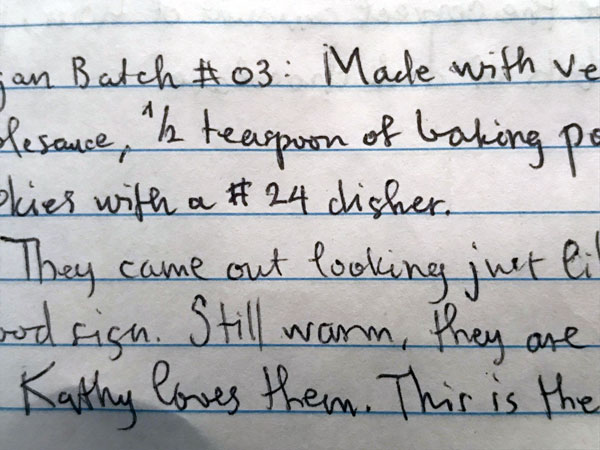 gan Batch # 03: Made with ve
plesauce, 1/2 teaspoon of baking po
okies with a # 24 disher.
They came out looking just li
ood sign. Still warm, they are
Kathy loves them. This is the